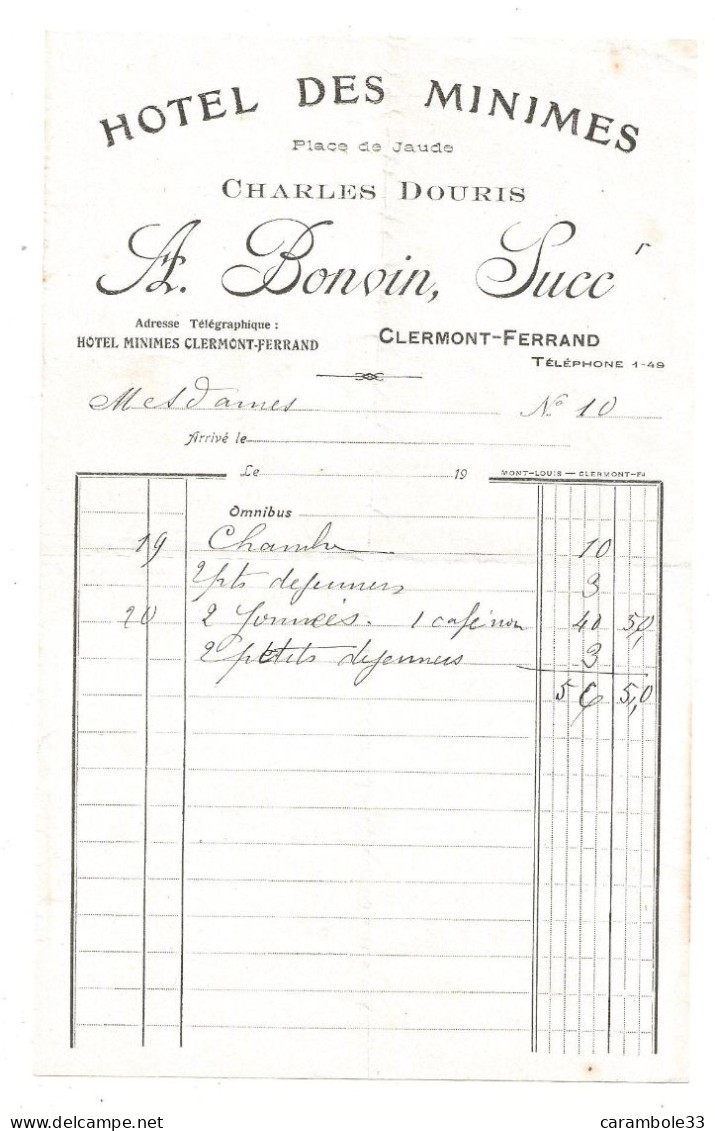 HOTEL DES MINIMES
Place de Jaude
CHARLES DOURIS
A. Bonvin, Succr
Adresse Télégraphique :
HOTEL MINIMES CLERMONT-FERRAND
CLERMONT-FERRAND
TÉLÉPHONE 1-49
Mesdames No 10
Arrivé le
Le 19 MONT-LOUIS — CLERMONT-Fd
Omnibus
19 Chambre 10
2 pts dejeuners 3
20 2 Journées. 1 café noir 40 50,
2 petits dejeuners 3
56 5,0
delcampe.net carambole33